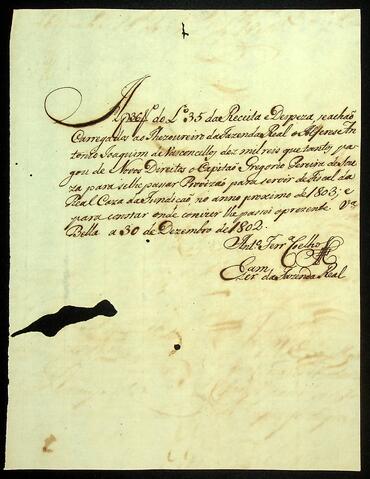 A do L.º 35 da Receita e Despeza, se achão
Carregados ao Thezoureiro da Fazenda Real o Alferes An-
tonio Joaquim de Vasconcellos dez mil reis que tantos pa-
gou de Novos Direitos o Capitão Gregorio Pereira de Sou-
za para se lhe passar Provizão para servir de Fiscal da
Real Caza da Fundicão, no anno proximo de 1803; e
para constar onde convier lhe passei o prezente. V.ª
Bella a 30 de Dezembro de 1802.
Coelho
da Fazenda Real